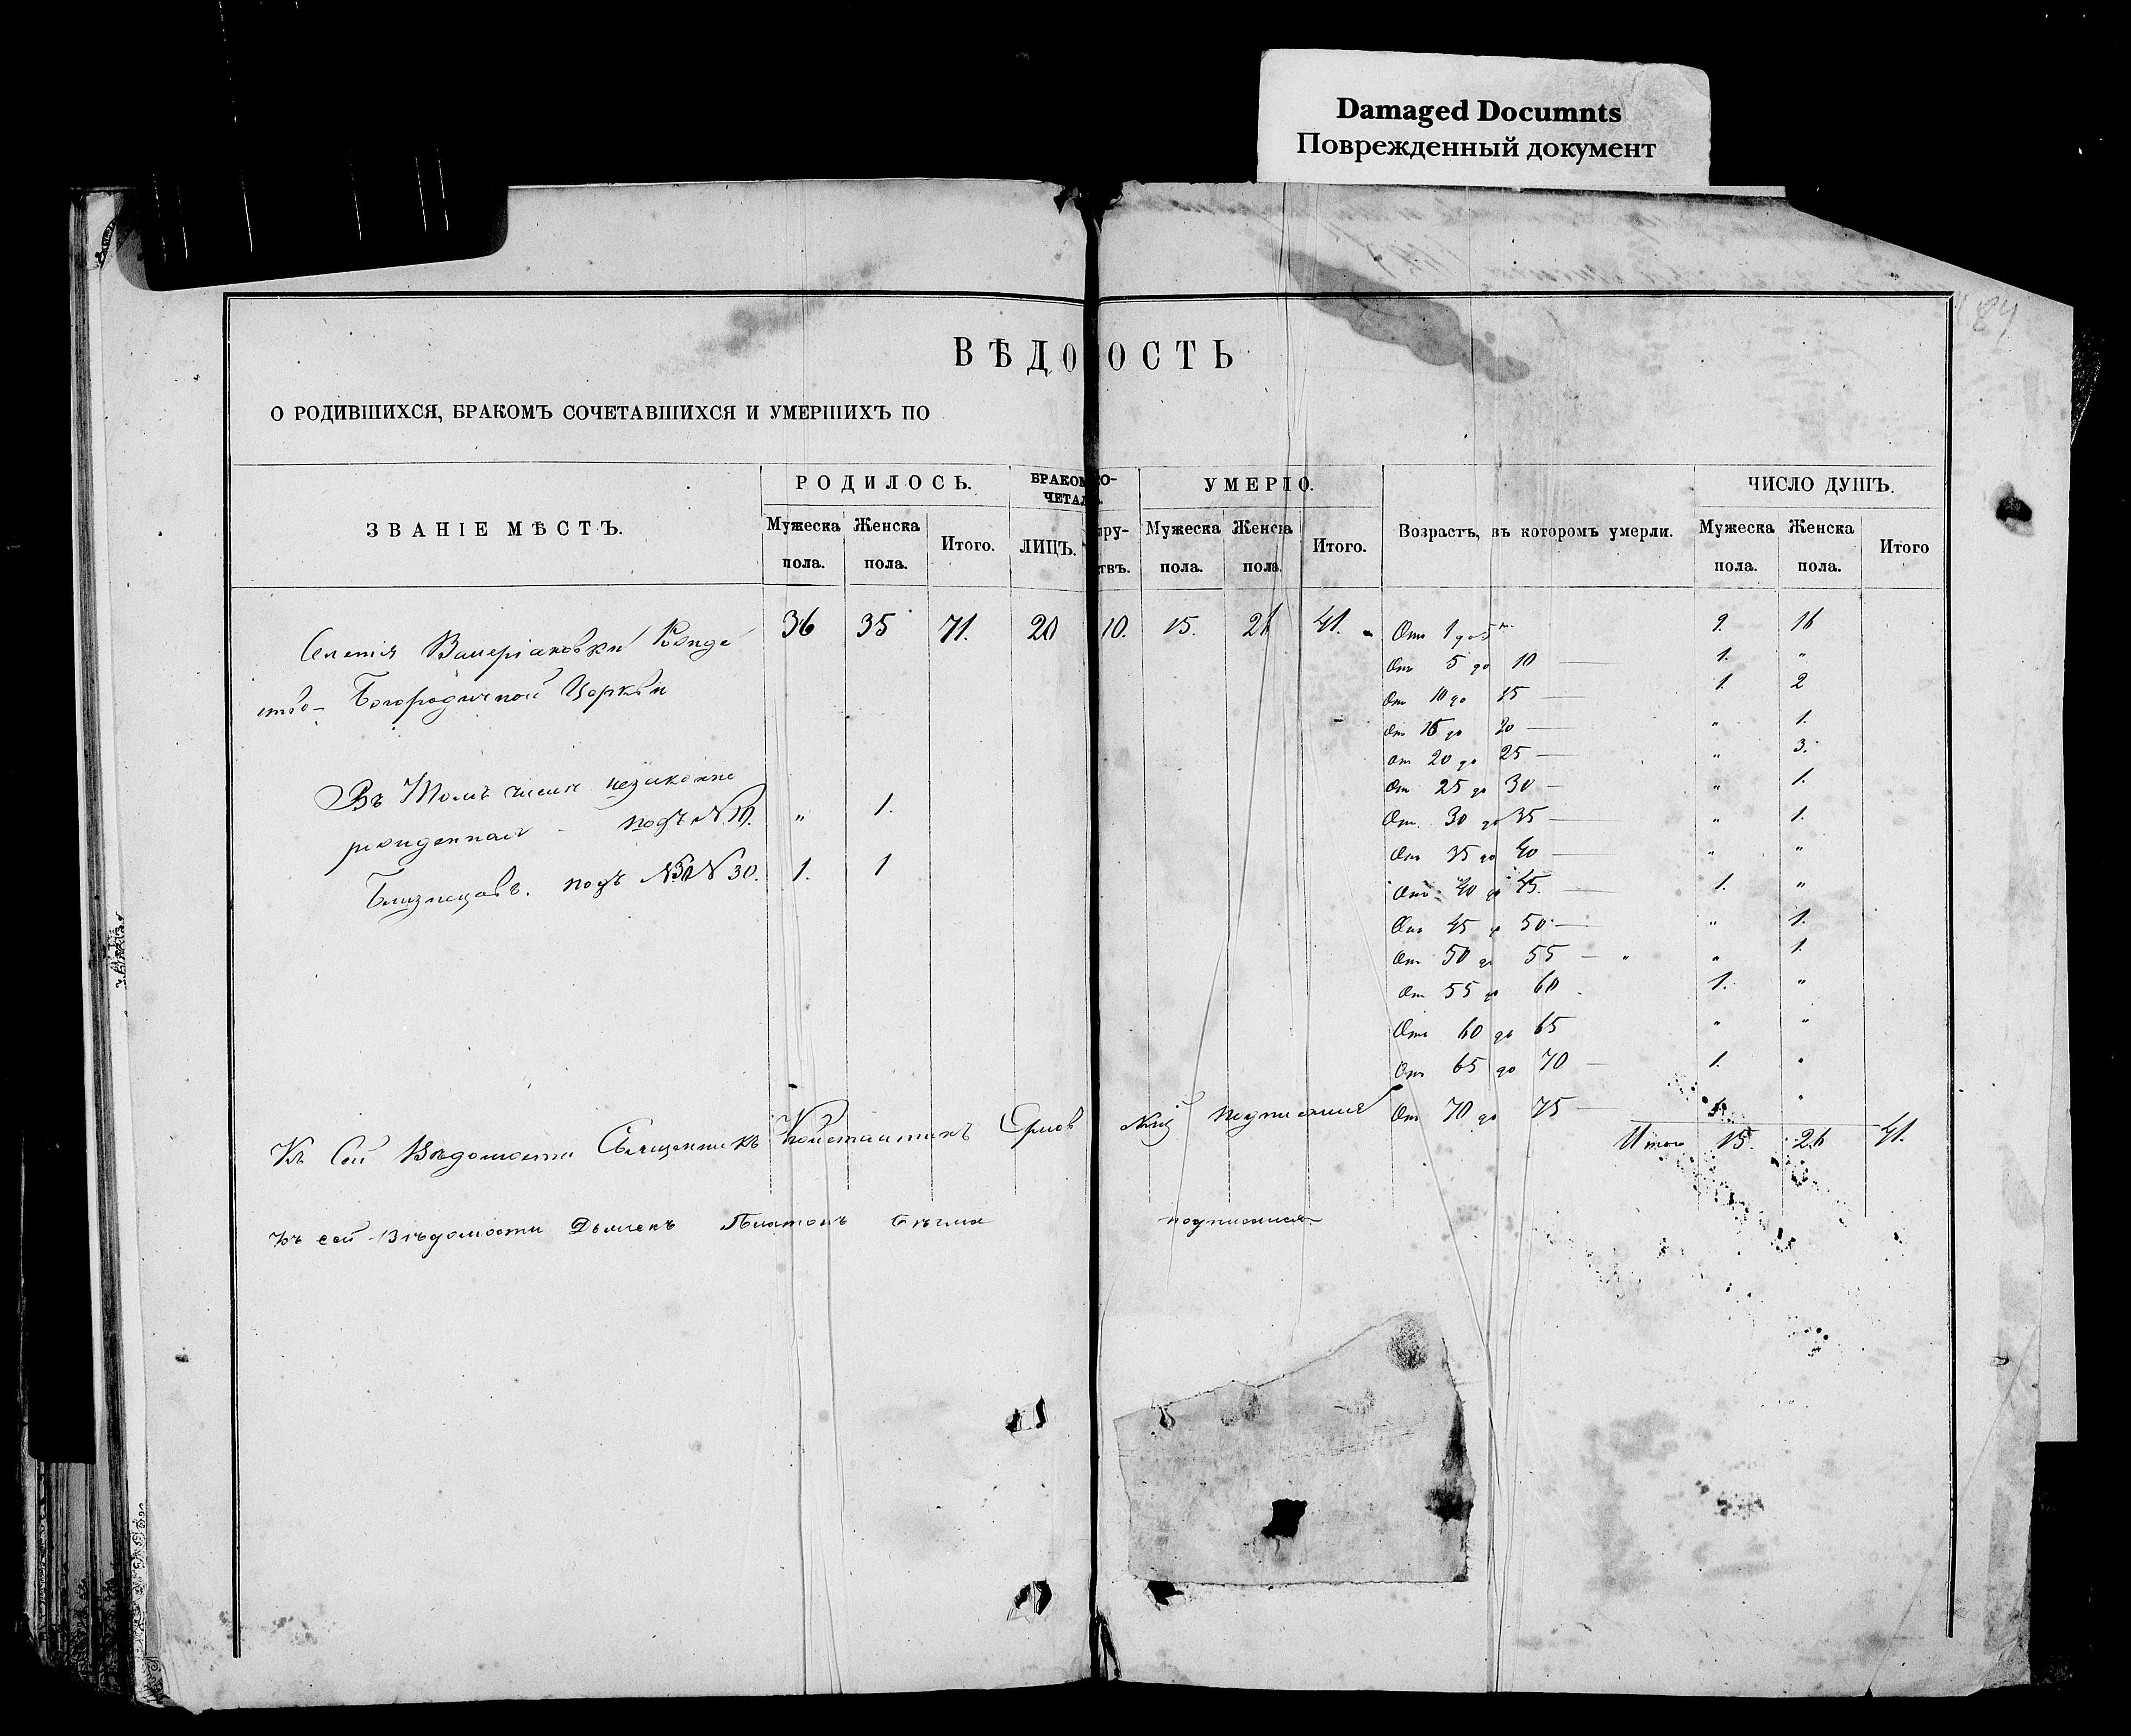 Damaged Documnts
Поврежденный документ
84
ВѢДО ОСТЬ
О РОДИВШИХСЯ, БРАКОМЪ СОЧЕТАВШИХСЯ И УМЕРШИХЪ ПО
ЗВАНІЕ МѢСТЪ.
РОДИЛОСЬ.
Мужеска пола.
Женска пола.
Итого.
БРАКОМ СО-
ЧЕТАЛ
ЛИЦЪ.
пру-
ствъ.
УМЕРЛО.
Мужеска пола.
Женска пола.
Итого.
Возрастъ, въ которомъ умерли.
ЧИСЛО ДУШЪ.
Мужеска пола.
Женска пола.
Итого
Селенія Валеріановки Рожде
ство- Богородичной Церкви
36 35 71. 20 10. 15. 26 41.
Въ Томъ числѣ незаконно
рожденная - подъ №19. „ 1.
Близнецовъ. подъ № 30. 1. 1
Отъ 1 до 5 9. 16
Отъ 5 до 10 — 1. „
Отъ 10 до 15 — 1. 2
Отъ 15 до 20 — „ 1.
Отъ 20 до 25 — „ 3.
Отъ 25 до 30 — „ 1.
Отъ 30 до 35 — „ 1.
Отъ 35 до 40 — „ „
Отъ 40 до 45. — 1. „
Отъ 45 до 50 — „ 1.
Отъ 50 до 55 — „ „ 1.
Отъ 55 до 60 1. „
Отъ 60 до 65 „ „
Отъ 65 до 70 — 1. „
Отъ 70 до 75 — 1. „
Итого 15. 26 41.
Къ Сей Вѣдомости Священникъ Константинъ подписался
Къ сей Вѣдомости Дьячекъ Платонъ подписался